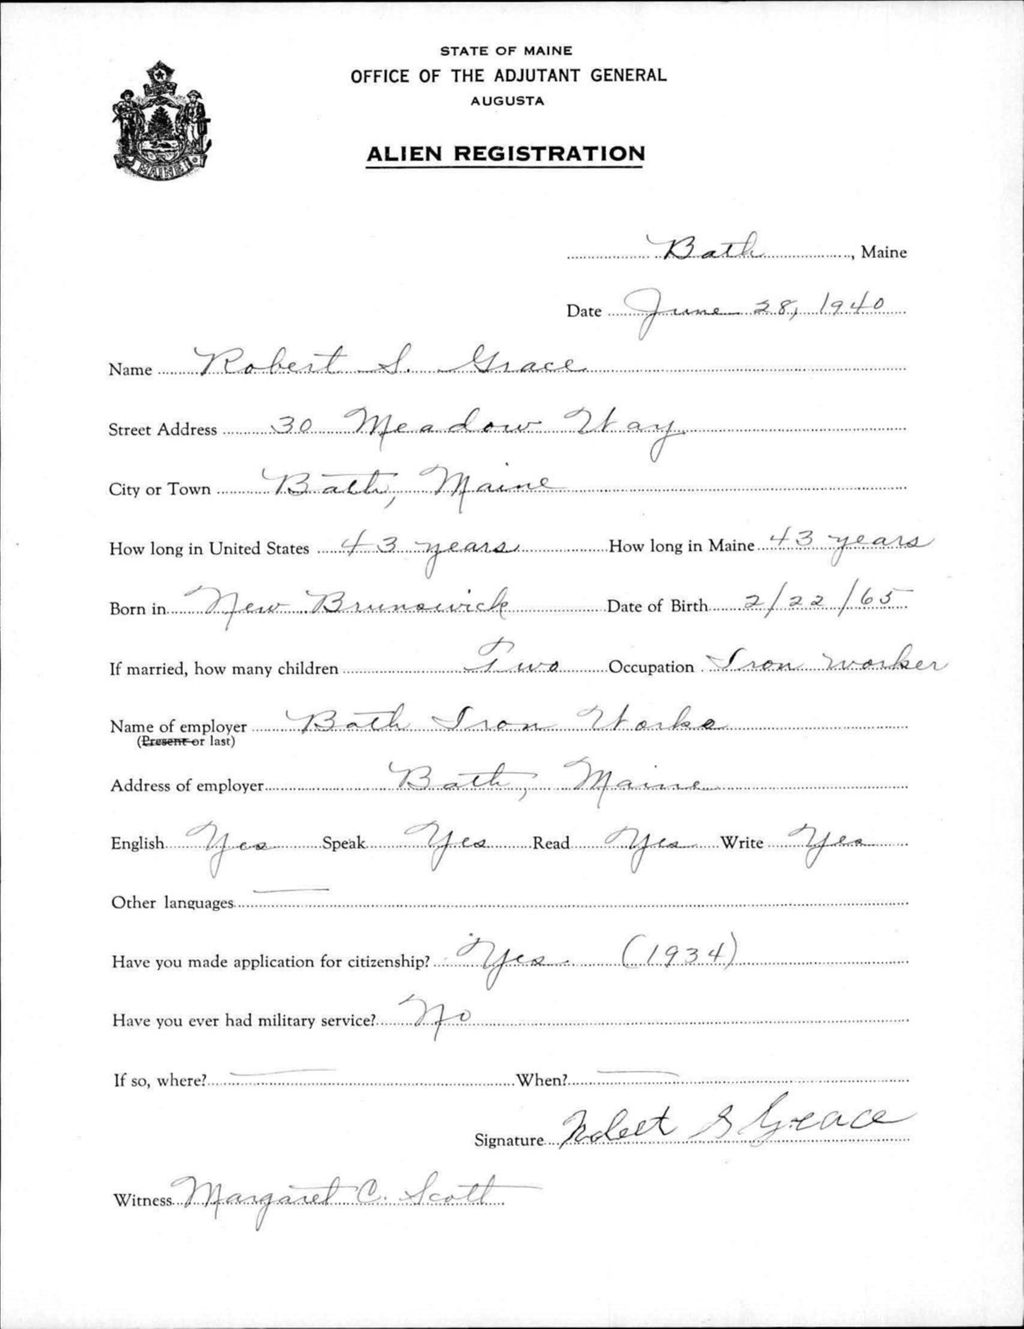 STATE OF MAINE
OFFICE OF THE ADJUTANT GENERAL
AUGUSTA
ALIEN REGISTRATION
MAINE
Bath, Maine
Date June 28, 1940
Name Robert S. Grace
Street Address 30 Meadow Way
City or Town Bath, Maine
How long in United States 43 years How long in Maine 43 years
Born in New Brunswick Date of Birth 2/22/65
If married, how many children Two Occupation Iron worker
Name of employer Bath Iron Works
(Present or last)
Address of employer Bath, Maine
English Yes Speak Yes Read Yes Write Yes
Other languages —
Have you made application for citizenship? Yes. (1934)
Have you ever had military service? No
If so, where? — When? —
Signature Robert S Grace
Witness Margaret C. Scott